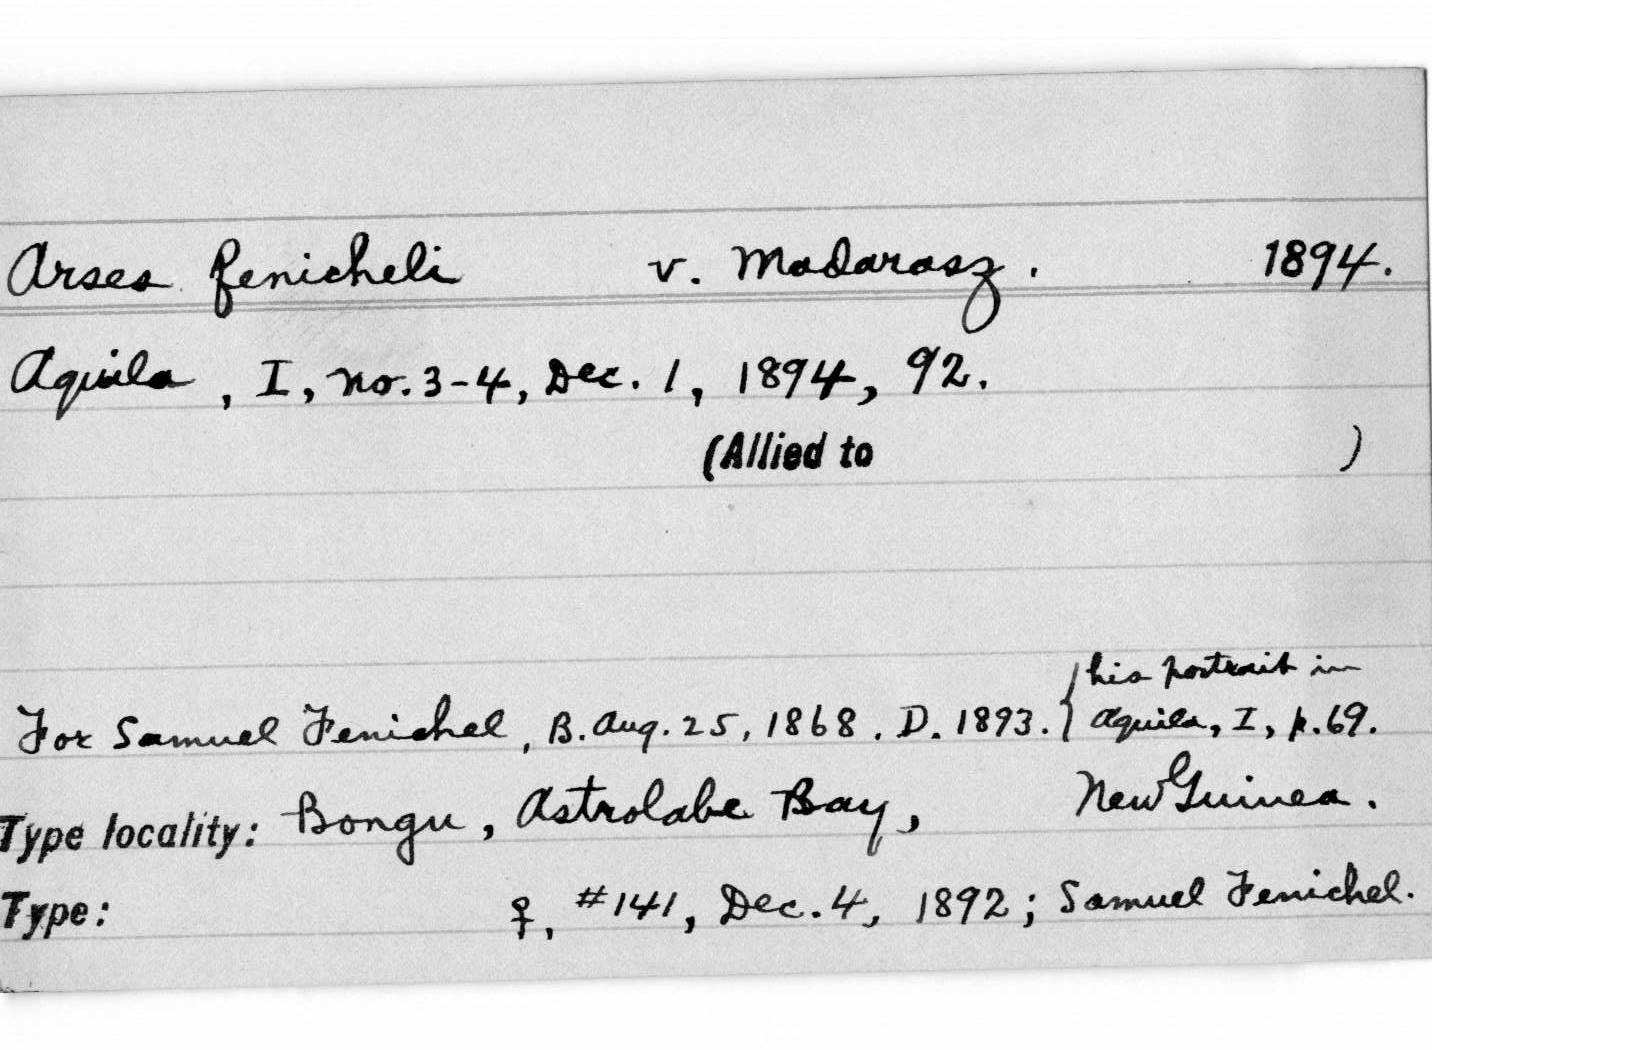 Arses fenicheli v. Madarasz. 1894.
Aquila, I, no. 3-4, Dec. 1, 1894, 92.
(Allied to )
his portrait in
For Samuel Fenichel, B. Aug. 25, 1868. D. 1893. { Aquila, I, p. 69.
Type locality: Bongu, Astrolabe Bay, New Guinea.
Type: ♀, #141, Dec. 4, 1892; Samuel Fenichel.